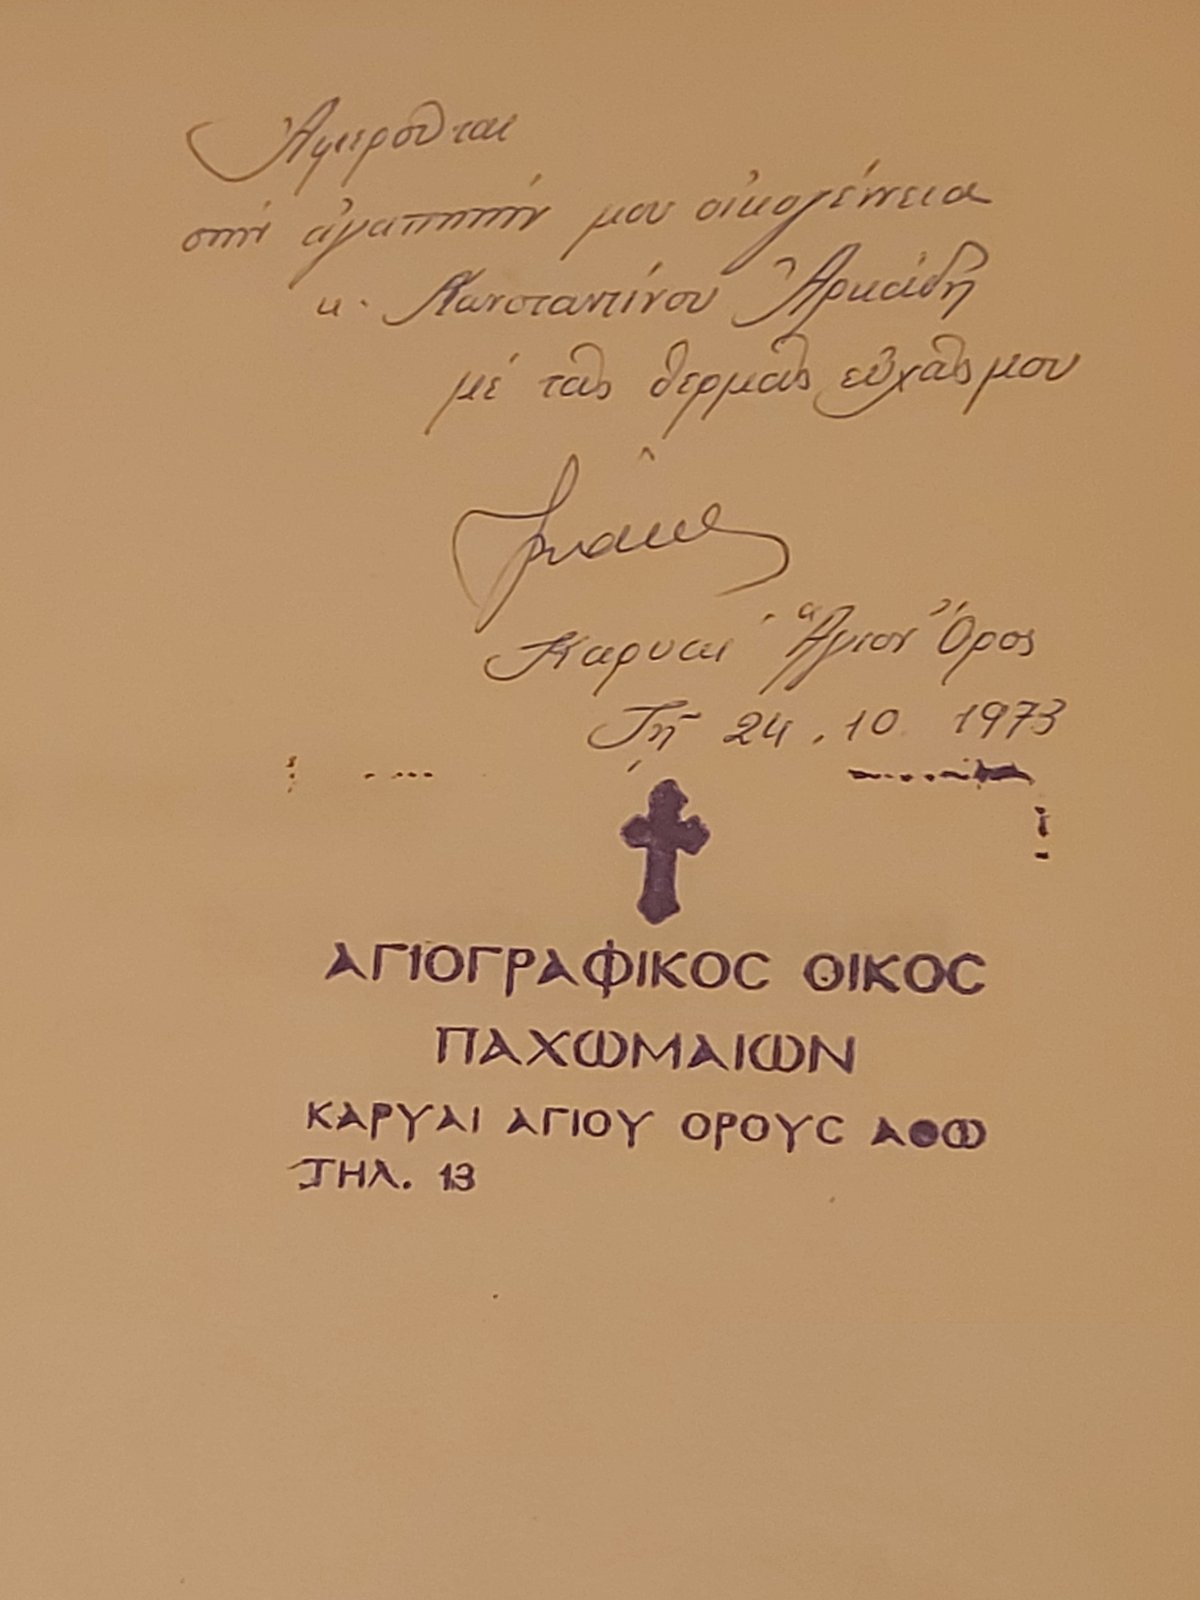 Ἀφιεροῦται
στὴν ἀγαπητήν μου οἰκογένεια
κ. Κωνσταντίνου Ἀρκάδη
μέ τὰς θερμὰς εὐχὰς μου
Καρυαί Ἅγιον Ὄρος
Τῇ 24.10.1973
ΑΓΙΟΓΡΑΦΙΚΟϹ ΟΙΚΟϹ
ΠΑΧΩΜΑΙΩΝ
ΚΑΡΥΑΙ ΑΓΙΟΥ ΟΡΟΥϹ ΑΘΩ
ΤΗΛ. 13